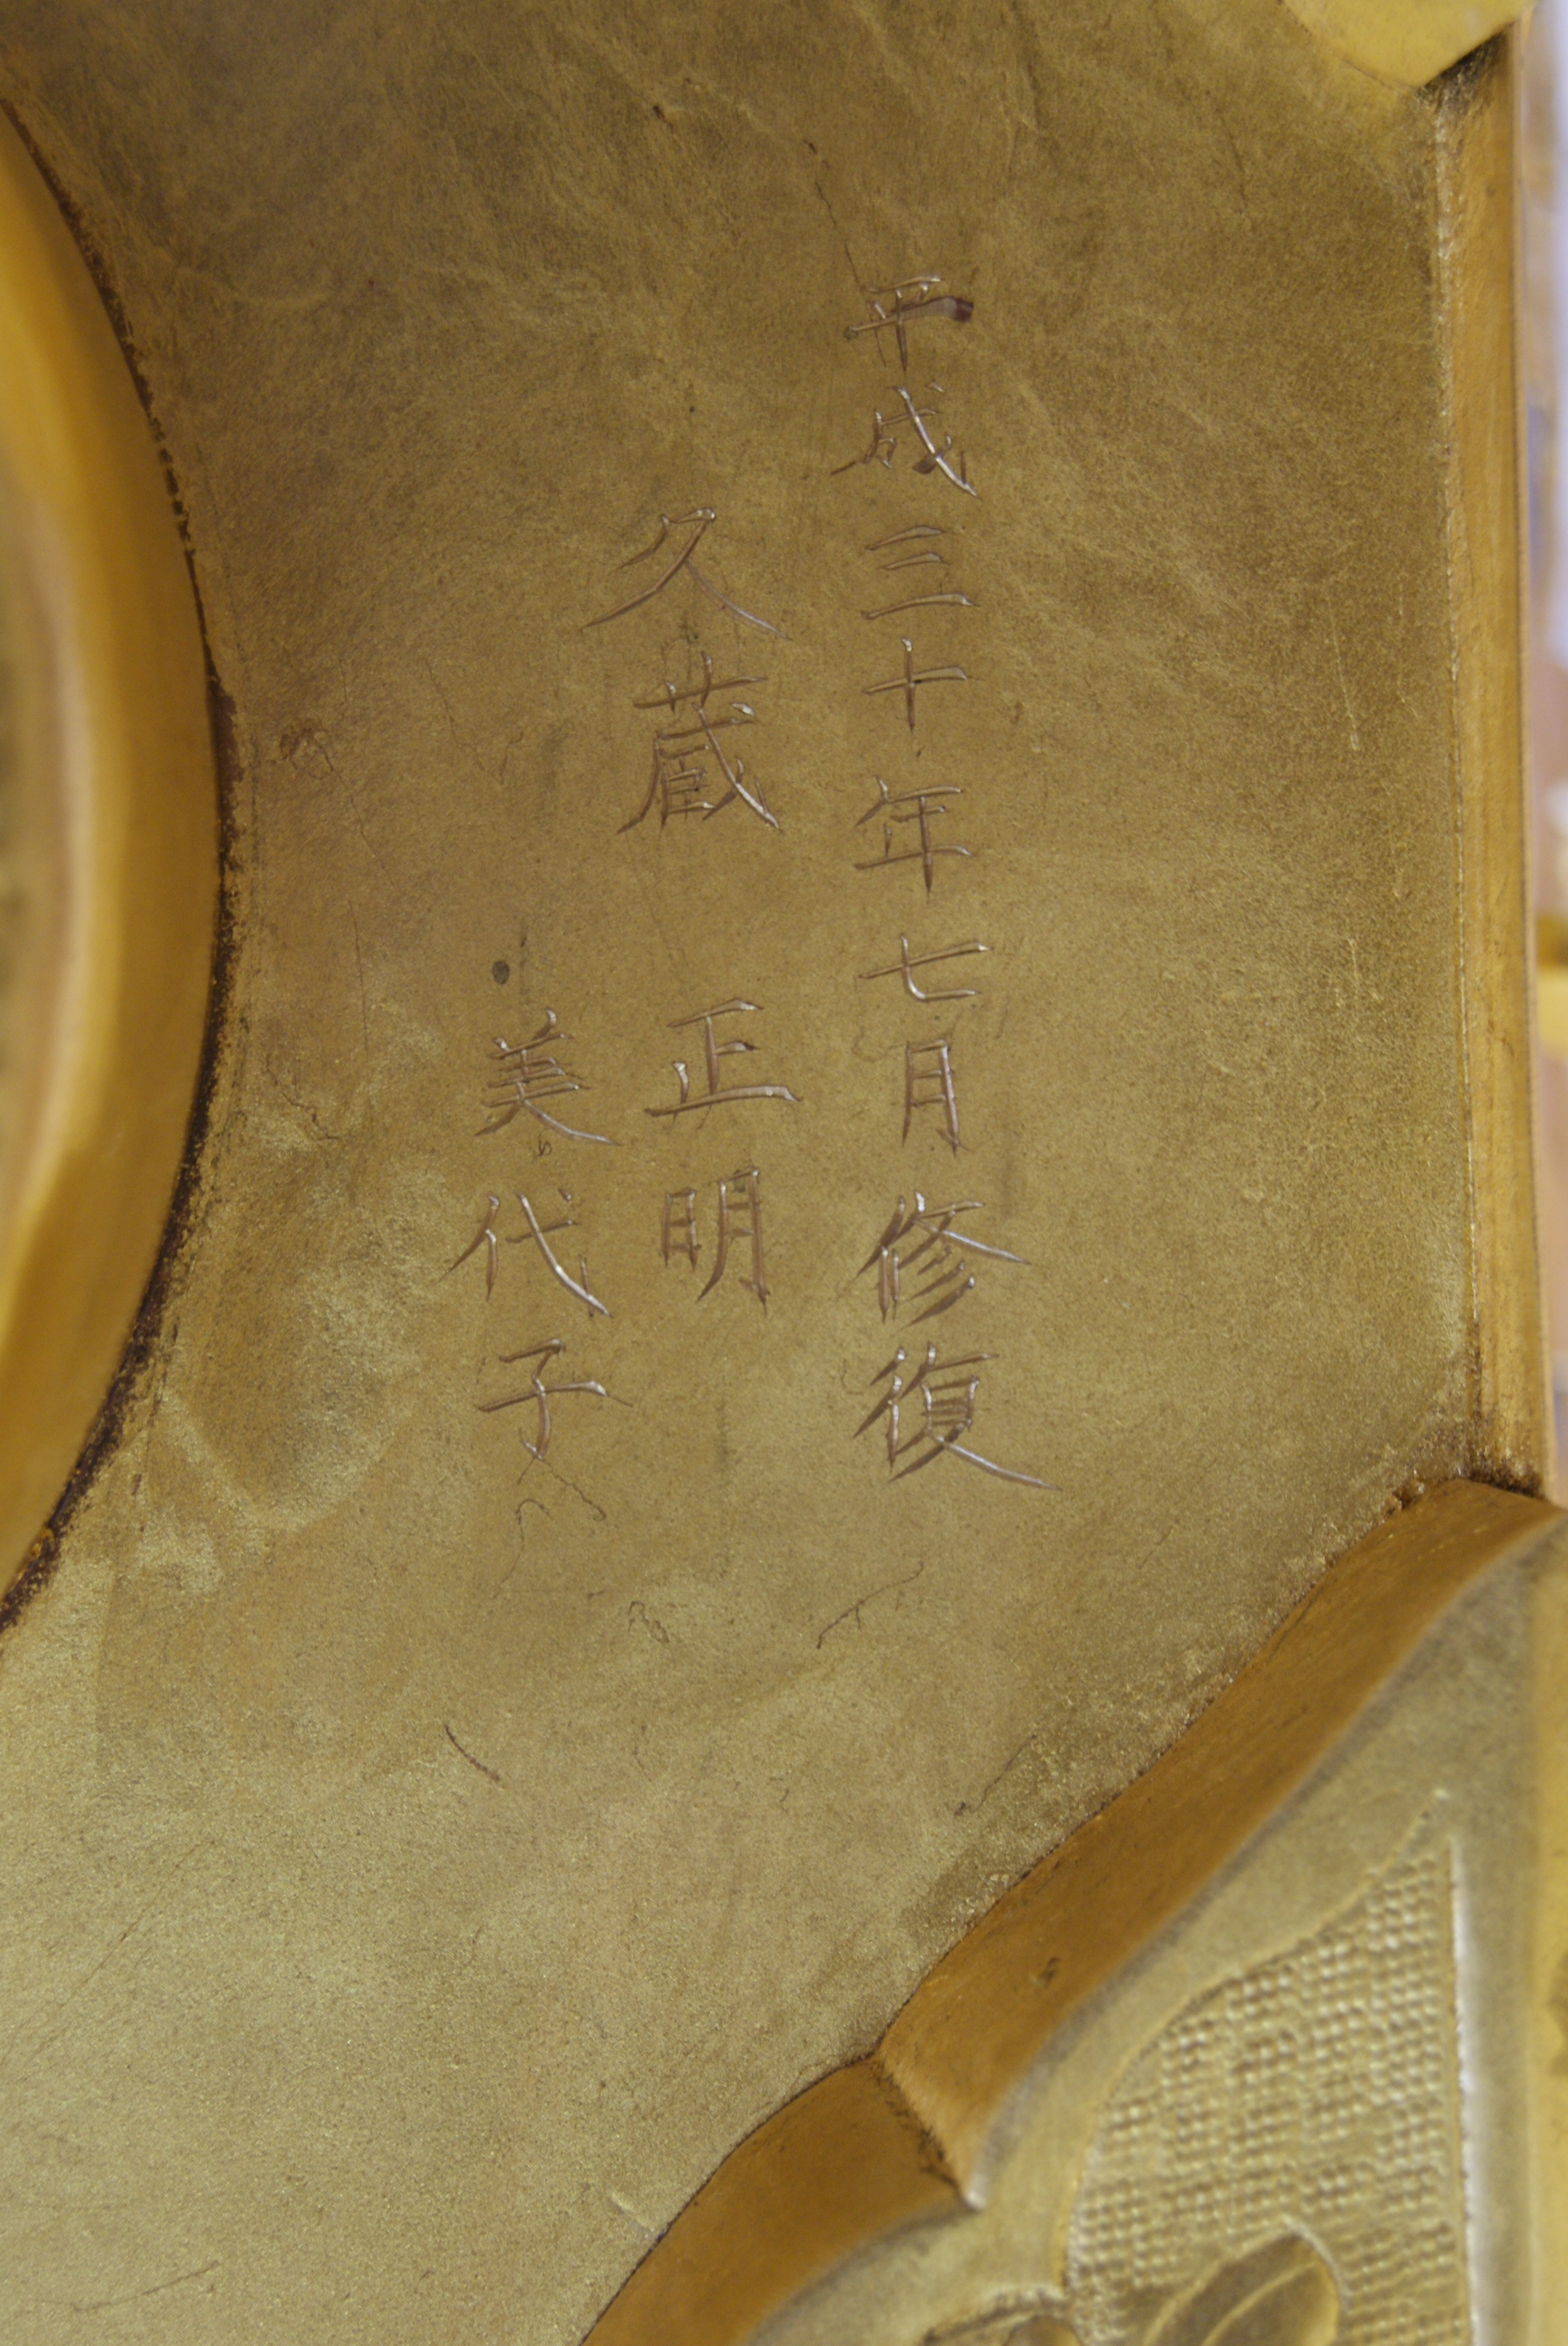 平成三十年七月修復
久蔵 正明
美代子